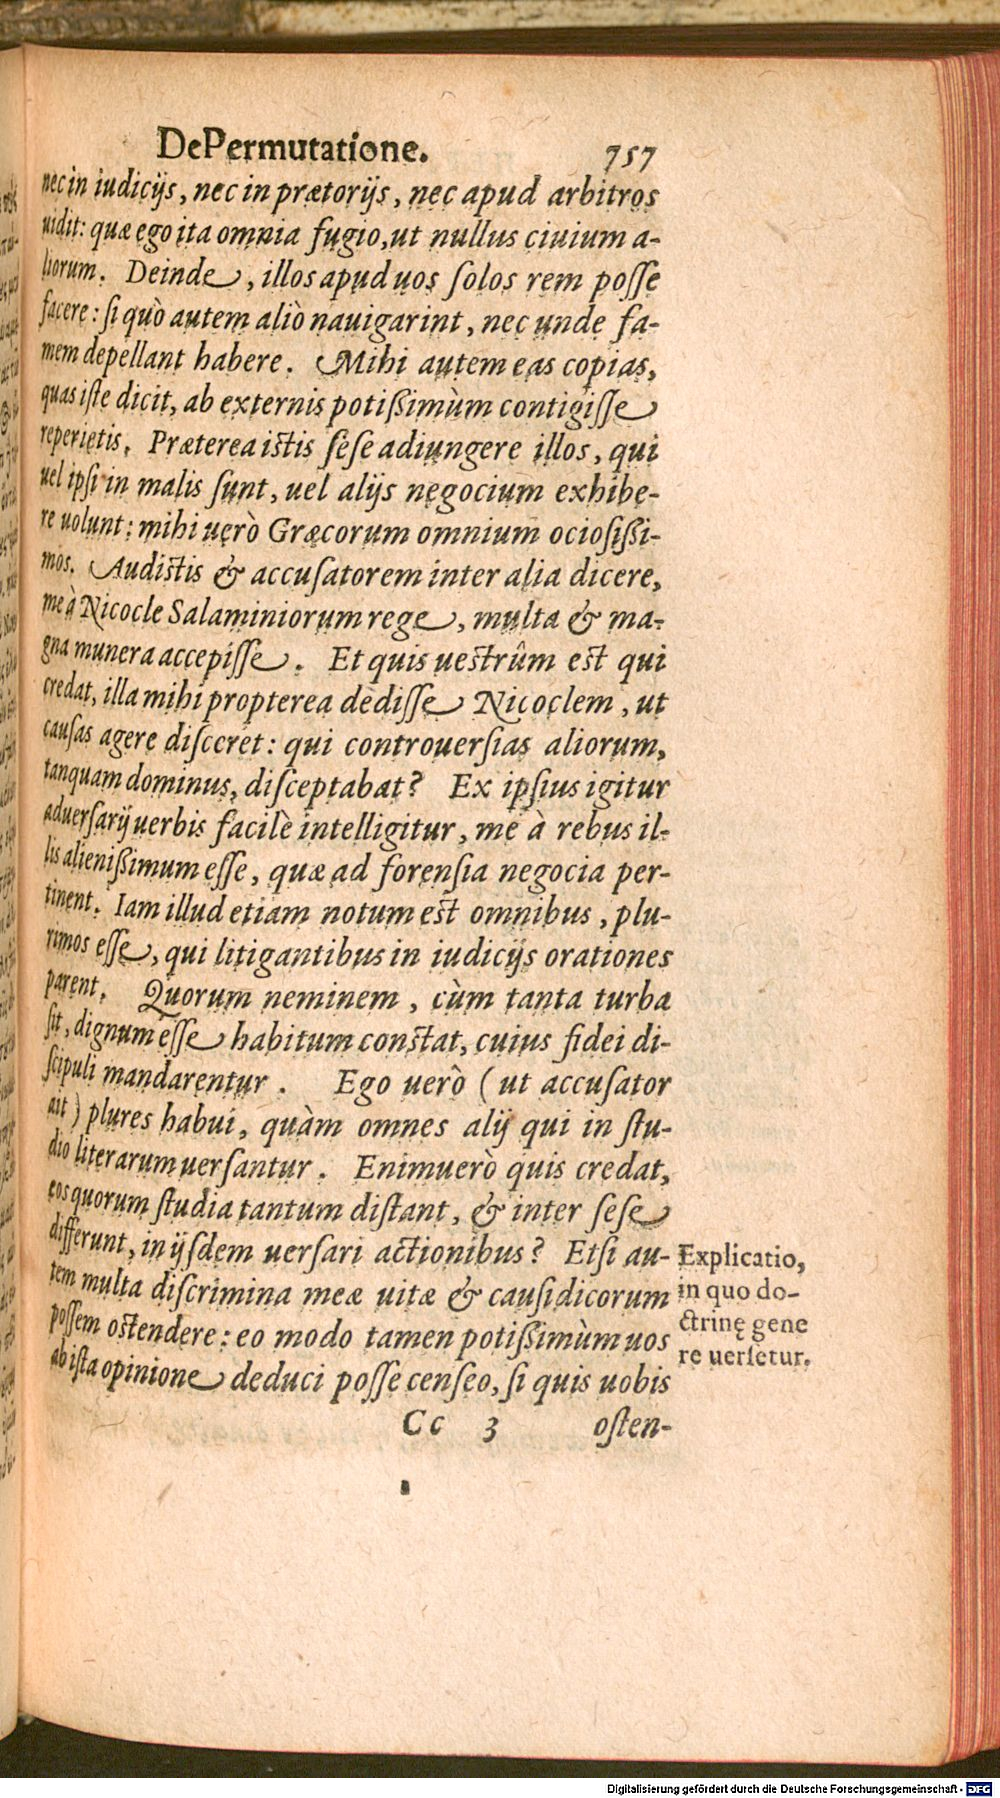 DePermutatione. 757
nec in iudicijs, nec in prætorijs, nec apud arbitros
uidit: quæ ego ita omnia fugio, ut nullus ciuium a-
liorum. Deinde, illos apud uos solos rem posse
facere: si quò autem aliò nauigarint, nec unde fa-
mem depellant habere. Mihi autem eas copias,
quas iste dicit, ab externis potißimùm contigisse
reperietis. Præterea istis sese adiungere illos, qui
uel ipsi in malis sunt, uel alijs negocium exhibe-
re uolunt: mihi uerò Græcorum omnium ociosißi-
mos. Audistis & accusatorem inter alia dicere,
me à Nicocle Salaminiorum rege, multa & ma-
gna munera accepisse. Et quis uestrûm est qui
credat, illa mihi propterea dedisse Nicoclem, ut
causas agere disceret: qui controuersias aliorum,
tanquam dominus, disceptabat? Ex ipsius igitur
aduersarij uerbis facilè intelligitur, me à rebus il-
lis alienißimum esse, quæ ad forensia negocia per-
tinent. Iam illud etiam notum est omnibus, plu-
rimos esse, qui litigantibus in iudicijs orationes
parent. Quorum neminem, cùm tanta turba
sit, dignum esse habitum constat, cuius fidei di-
scipuli mandarentur. Ego uerò (ut accusator
ait) plures habui, quàm omnes alij qui in stu-
dio literarum uersantur. Enimuerò quis credat,
eos quorum studia tantum distant, & inter sese
differunt, in ijsdem uersari actionibus? Etsi au-
tem multa discrimina meæ uitæ & causidicorum
possem ostendere: eo modo tamen potißimùm uos
ab ista opinione deduci posse censeo, si quis uobis
Cc 3 osten-
Explicatio,
in quo do-
ctrinę gene
re uersetur.
Digitalisierung gefördert durch die Deutsche Forschungsgemeinschaft - DFG